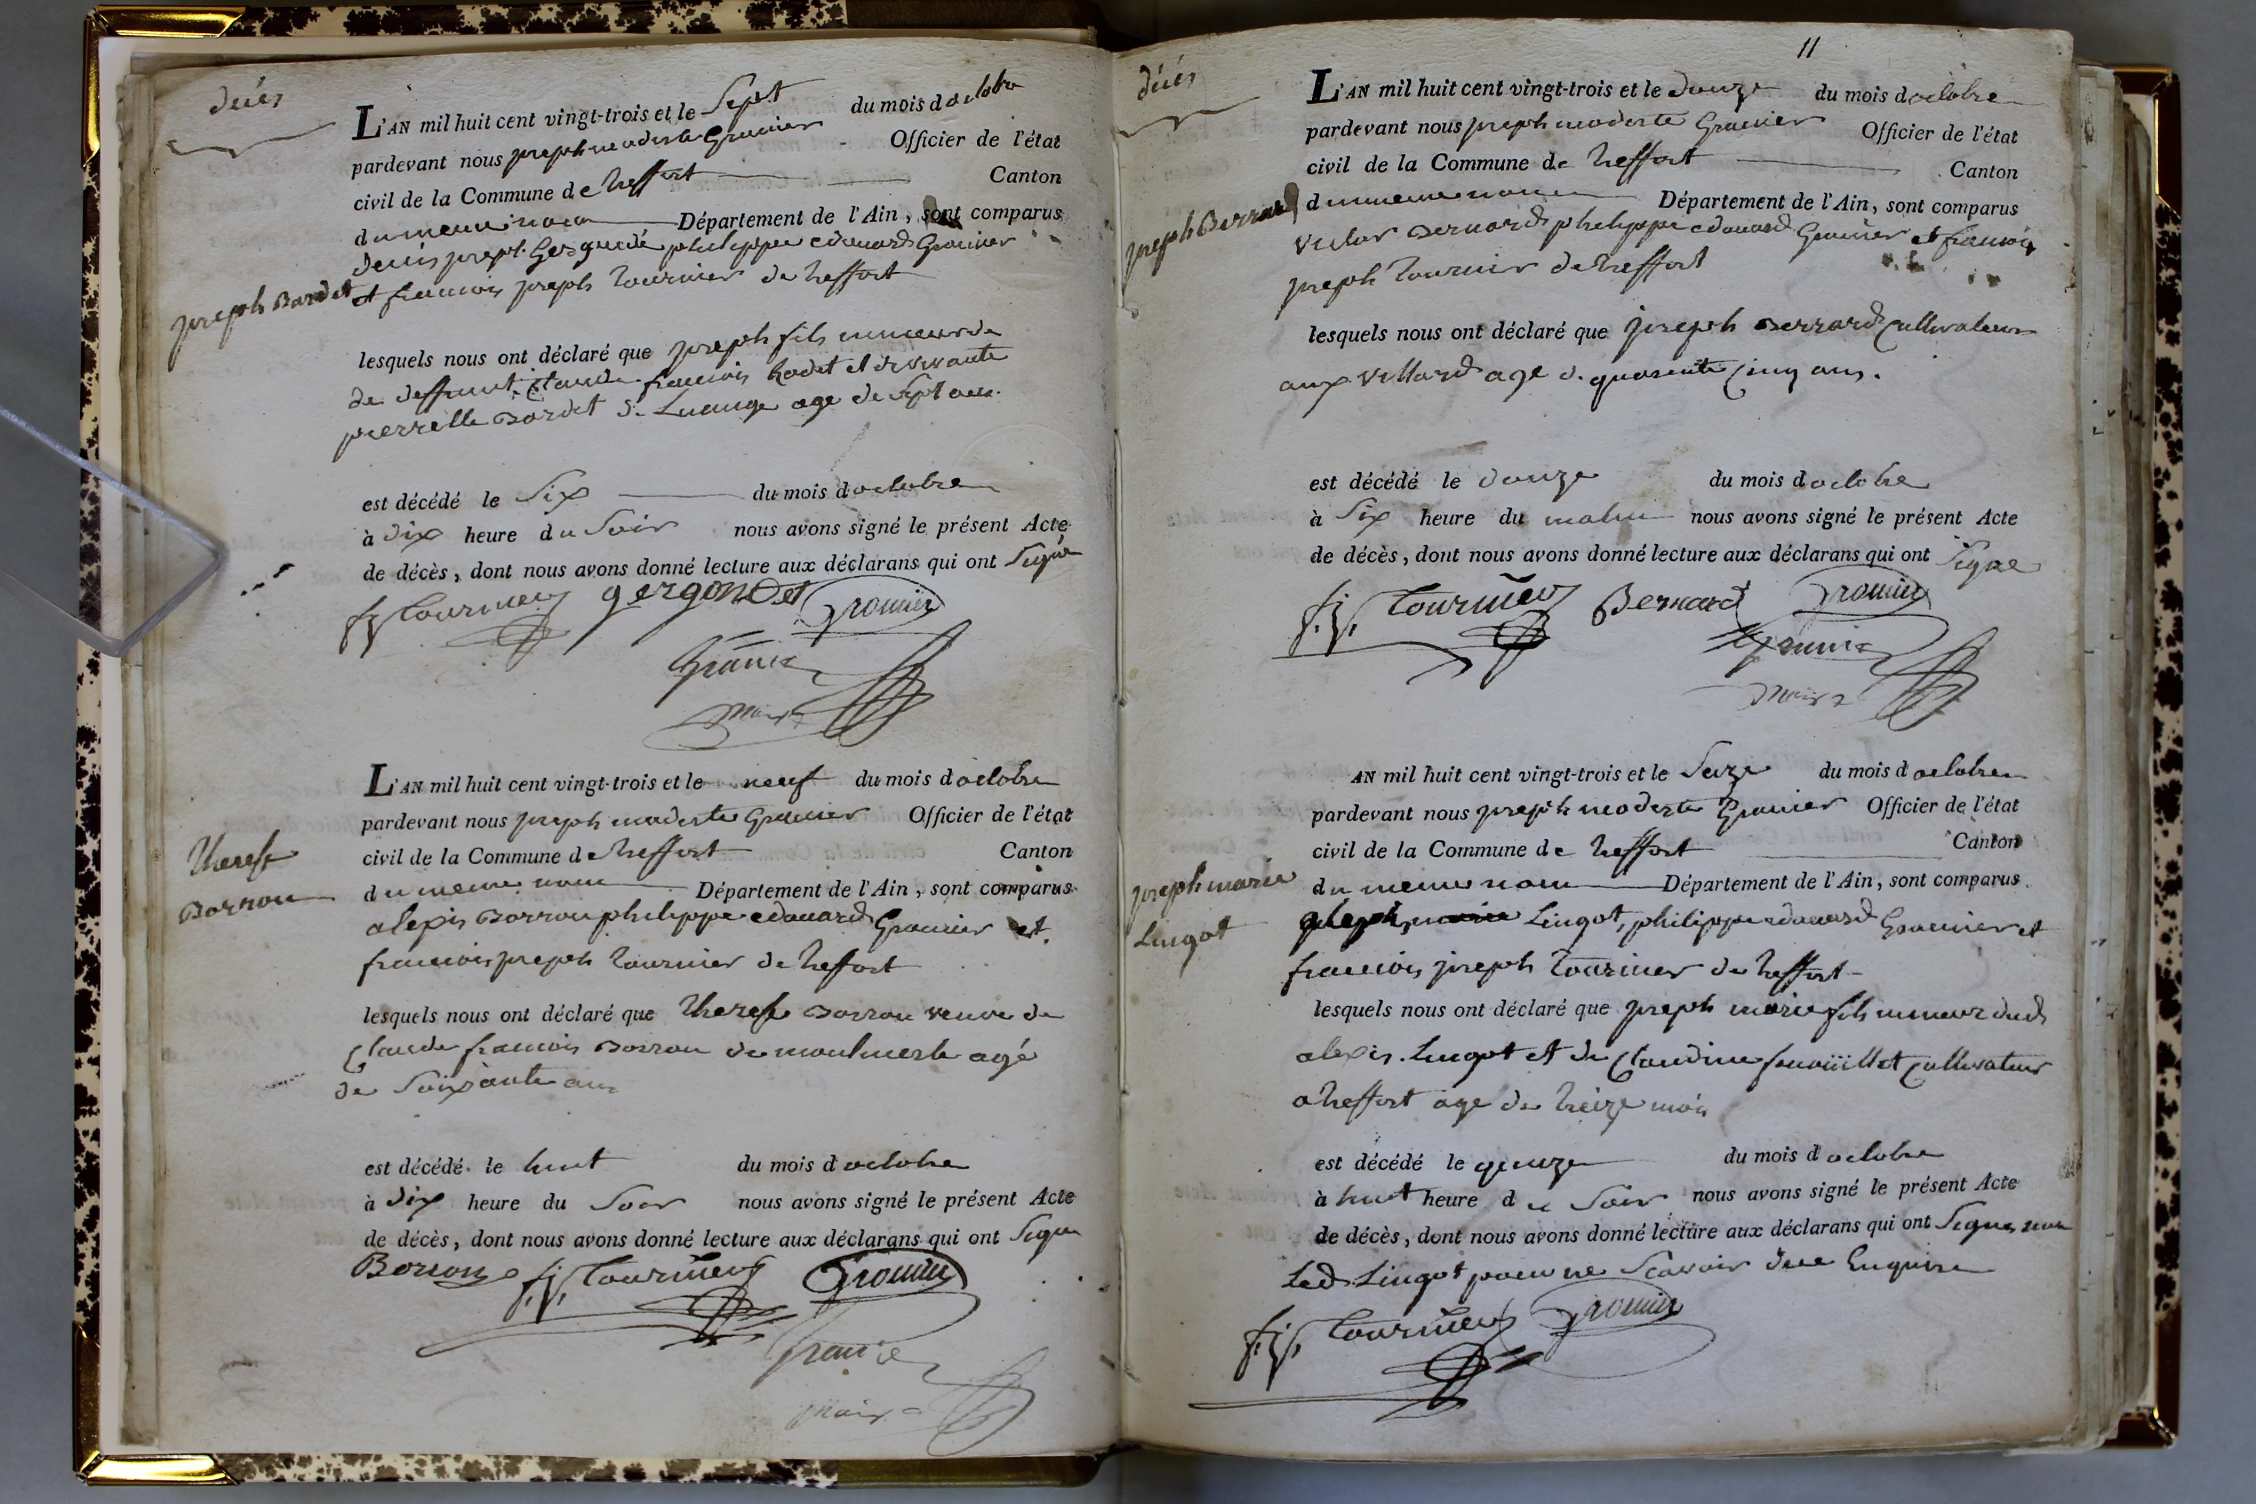 décés
L'AN mil huit cent vingt-trois et le Sept du mois doctobre
pardevant nous joseph modeste Gromier Officier de l'état
civil de la Commune de treffort Canton
du meme nom Département de l'Ain, sont comparus
denis joseph philippe edouard Gromier
joseph Bardet
et francois joseph tournier de treffort
lesquels nous ont déclaré que joseph fils mineur de
de deffunt Claude francois et de vivante
pierrette Bardet de age de Sept ans.
est décédé le Six du mois doctobre
à dix heure du Soir nous avons signé le présent Acte
de décès, dont nous avons donné lecture aux déclarans qui ont Signé
fjs tournier gergondet Gromier
Gromier
maire
L'AN mil huit cent vingt-trois et le neuf du mois doctobre
pardevant nous joseph modeste Gromier Officier de l'état
civil de la Commune de treffort Canton
therese
Borron
du meme nom Département de l'Ain, sont comparus
alexis Borron philippe edouard Gromier et
francois joseph tournier de treffort
lesquels nous ont déclaré que therese Borron veuve de
Claude francois Borron de montmerle agé
de Soixante ans
est décédé le huit du mois doctobre
à dix heure du Soir nous avons signé le présent Acte
de décès, dont nous avons donné lecture aux déclarans qui ont Signé
Borron f.j.s. tournier Gromier
Gromier
maire
11
décés
L'AN mil huit cent vingt-trois et le douze du mois doctobre
pardevant nous joseph modeste Gromier Officier de l'état
civil de la Commune de treffort Canton
joseph Berrard
du meme nom Département de l'Ain, sont comparus
victor Bernard philippe edouard Gromier et francois
joseph tournier de treffort
lesquels nous ont déclaré que joseph Berrard Cultivateur
aux Villard age de quarente Cinq ans.
est décédé le douze du mois doctobre
à Six heure du matin nous avons signé le présent Acte
de décès, dont nous avons donné lecture aux déclarans qui ont Signé
f.j.s. tournier Bernard Gromier
Gromier
maire
AN mil huit cent vingt-trois et le Seize du mois doctobre
pardevant nous joseph modeste Gromier Officier de l'état
civil de la Commune de treffort Canton
joseph marie
Lingot
du meme nom Département de l'Ain, sont comparus
Lingot, philippe edouard Gromier et
francois joseph tournier de treffort
lesquels nous ont déclaré que joseph marie fils mineur dud
alexis Lingot et de Claudine fenoüillet Cultivateur
a treffort age de treize mois
est décédé le quinze du mois doctobre
à huit heure du Soir nous avons signé le présent Acte
de décès, dont nous avons donné lecture aux déclarans qui ont Signé, non
Led Lingot pour ne Scavoir de ce Enquis
f.j.s. tournier Gromier